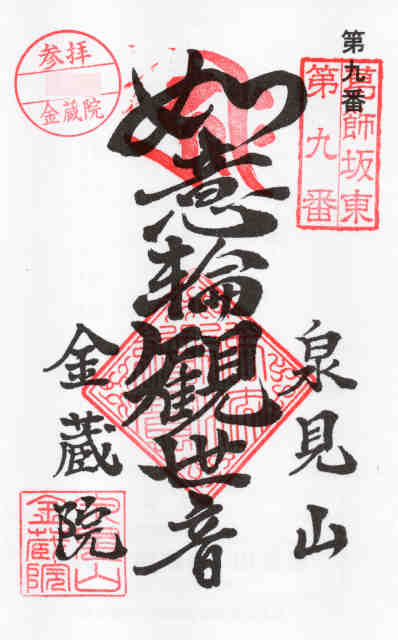 第九番
葛師坂東
第九番
泉見山
如意輪観世音
金蔵院
参拝
金蔵院
泉見山
金蔵院